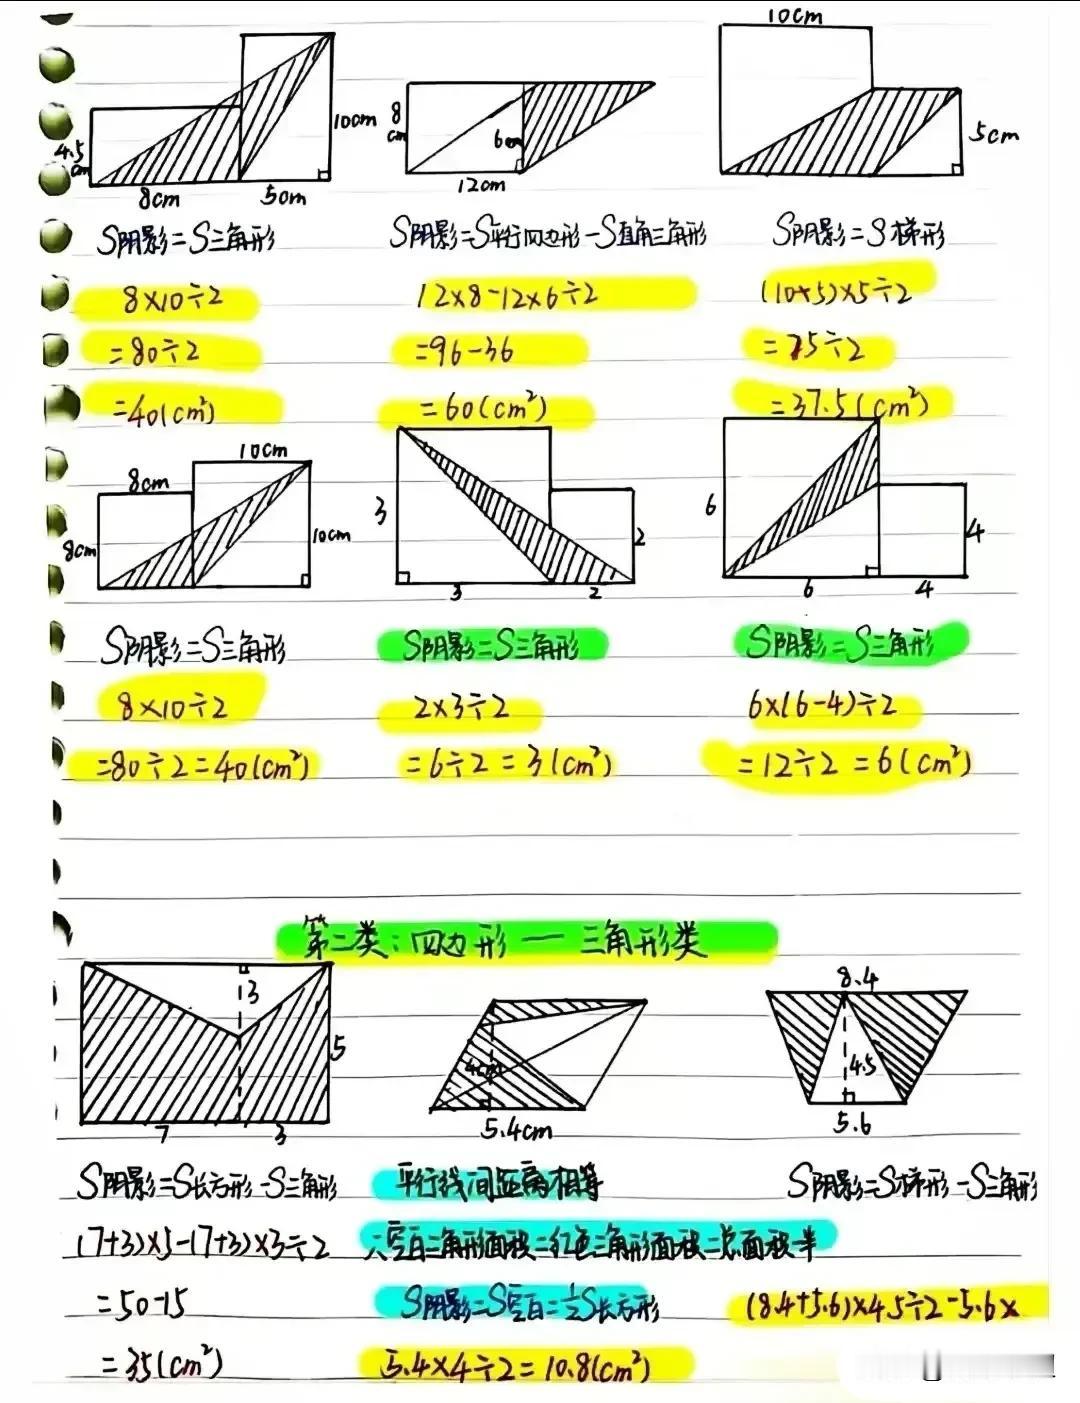 10cm
10cm
8cm
6cm
5cm
4.5cm
8cm
5cm
12cm
S阴影=S三角形
S阴影=S平行四边形-S直角三角形
S阴影=S梯形
8×10÷2
12×8-12×6÷2
(10+5)×5÷2
=80÷2
=96-36
=75÷2
=40(cm²)
=60(cm²)
=37.5(cm²)
10cm
8cm
8cm
10cm
3
2
6
4
3
2
6
4
S阴影=S三角形
S阴影=S三角形
S阴影=S三角形
8×10÷2
2×3÷2
6×(6-4)÷2
=80÷2=40(cm²)
=6÷2=3(cm²)
=12÷2=6(cm²)
第二类:四边形一三角形类
3
5
7
3
4cm
5.4cm
8.4
4.5
5.6
S阴影=S长方形-S三角形
平行线间距离相等
S阴影=S梯形-S三角形
(7+3)×5-(7+3)×3÷2
空白三角形面积=红色三角形面积=总面积半
=50-15
S阴影=S空白=½S长方形
(8.4+5.6)×4.5÷2-5.6×
=35(cm²)
5.4×4÷2=10.8(cm²)